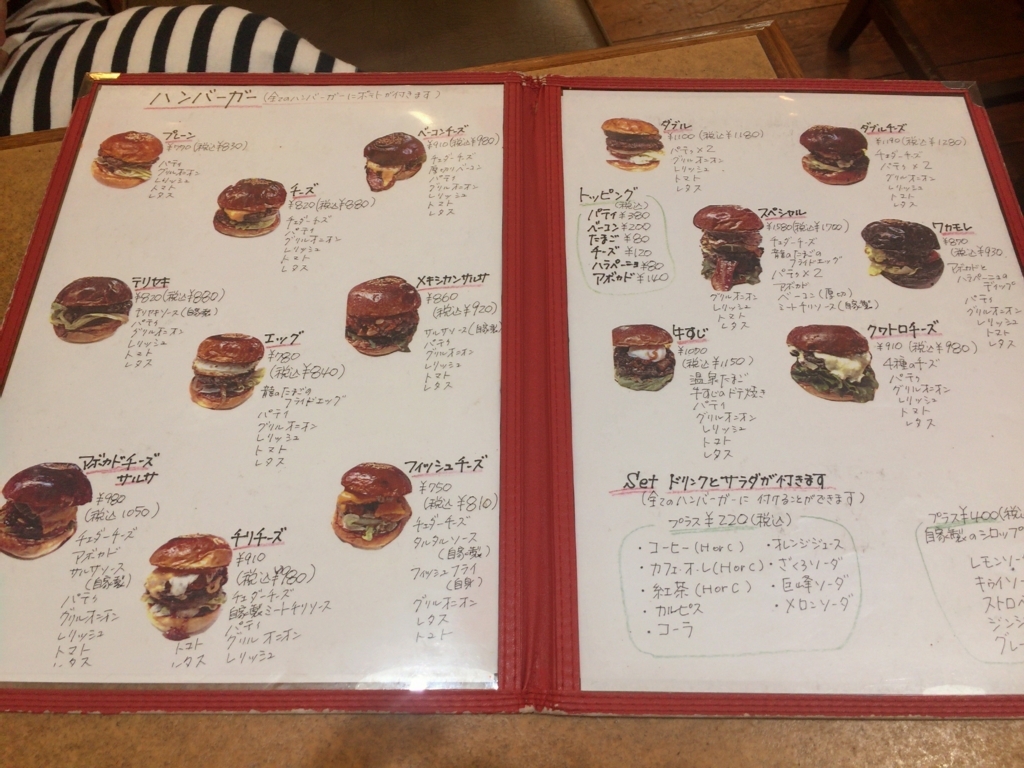 ハンバーガー (全てのハンバーガーにポテトが付きます)
プレーン
¥790(税込¥850)
パティ
グリルオニオン
レリッシュ
トマト
レタス
ベーコンチーズ
¥910(税込¥980)
チェダーチーズ
厚切りベーコン
パティ
グリルオニオン
レリッシュ
トマト
レタス
チーズ
¥820(税込¥880)
チェダーチーズ
パティ
グリルオニオン
レリッシュ
トマト
レタス
テリヤキ
¥820(税込¥880)
テリヤキソース(自家製)
パティ
グリルオニオン
レリッシュ
トマト
レタス
メキシカンサルサ
¥860
(税込¥920)
サルサソース(自家製)
パティ
グリルオニオン
レリッシュ
トマト
レタス
エッグ
¥780
(税込¥840)
龍のたまごの
フライドエッグ
パティ
グリルオニオン
レリッシュ
トマト
レタス
アボカドチーズ
サルサ
¥980
(税込1050)
チェダーチーズ
アボカド
サルサソース
(自家製)
パティ
グリルオニオン
レリッシュ
トマト
レタス
チリチーズ
¥910
(税込¥980)
チェダーチーズ
自家製ミートチリソース
パティ
グリルオニオン
レリッシュ
トマト
レタス
フィッシュチーズ
¥750
(税込¥810)
チェダーチーズ
タルタルソース
(自家製)
フィッシュフライ
(白身)
グリルオニオン
レタス
トマト
ダブル
¥1100(税込¥1180)
パティ×2
グリルオニオン
レリッシュ
トマト
レタス
ダブルチーズ
¥1190(税込¥1280)
チェダーチーズ
パティ×2
グリルオニオン
レリッシュ
トマト
レタス
トッピング
(税込)
パティ¥380
ベーコン¥200
たまご¥80
チーズ¥120
ハラペーニョ¥80
アボカド¥140
スペシャル
¥1580(税込¥1700)
チェダーチーズ
龍のたまごの
フライドエッグ
パティ×2
アボカド
ベーコン(厚切)
ミートチリソース(自家製)
グリルオニオン
レリッシュ
トマト
レタス
ワカモレ
¥870
(税込¥930)
アボカドと
ハラペーニョの
ディップ
パティ
グリルオニオン
レリッシュ
トマト
レタス
牛すじ
(税込¥1150)
温泉たまご
牛すじのドテ焼き
パティ
グリルオニオン
レリッシュ
トマト
レタス
クワトロチーズ
¥910(税込¥980)
4種のチーズ
パティ
グリルオニオン
レリッシュ
トマト
レタス
Set ドリンクとサラダが付きます
(全てのハンバーガーに付けることができます)
プラス¥220(税込)
・コーヒー(HorC)
・カフェ・オ・レ(HorC)
・紅茶(HorC)
・カルピス
・コーラ
・オレンジジュース
・ざくろソーダ
・巨峰ソーダ
・メロンソーダ
プラス¥400(税込
自家製のシロップ
レモンソー
キウイソー
ストロベ
ジンジ
グレー